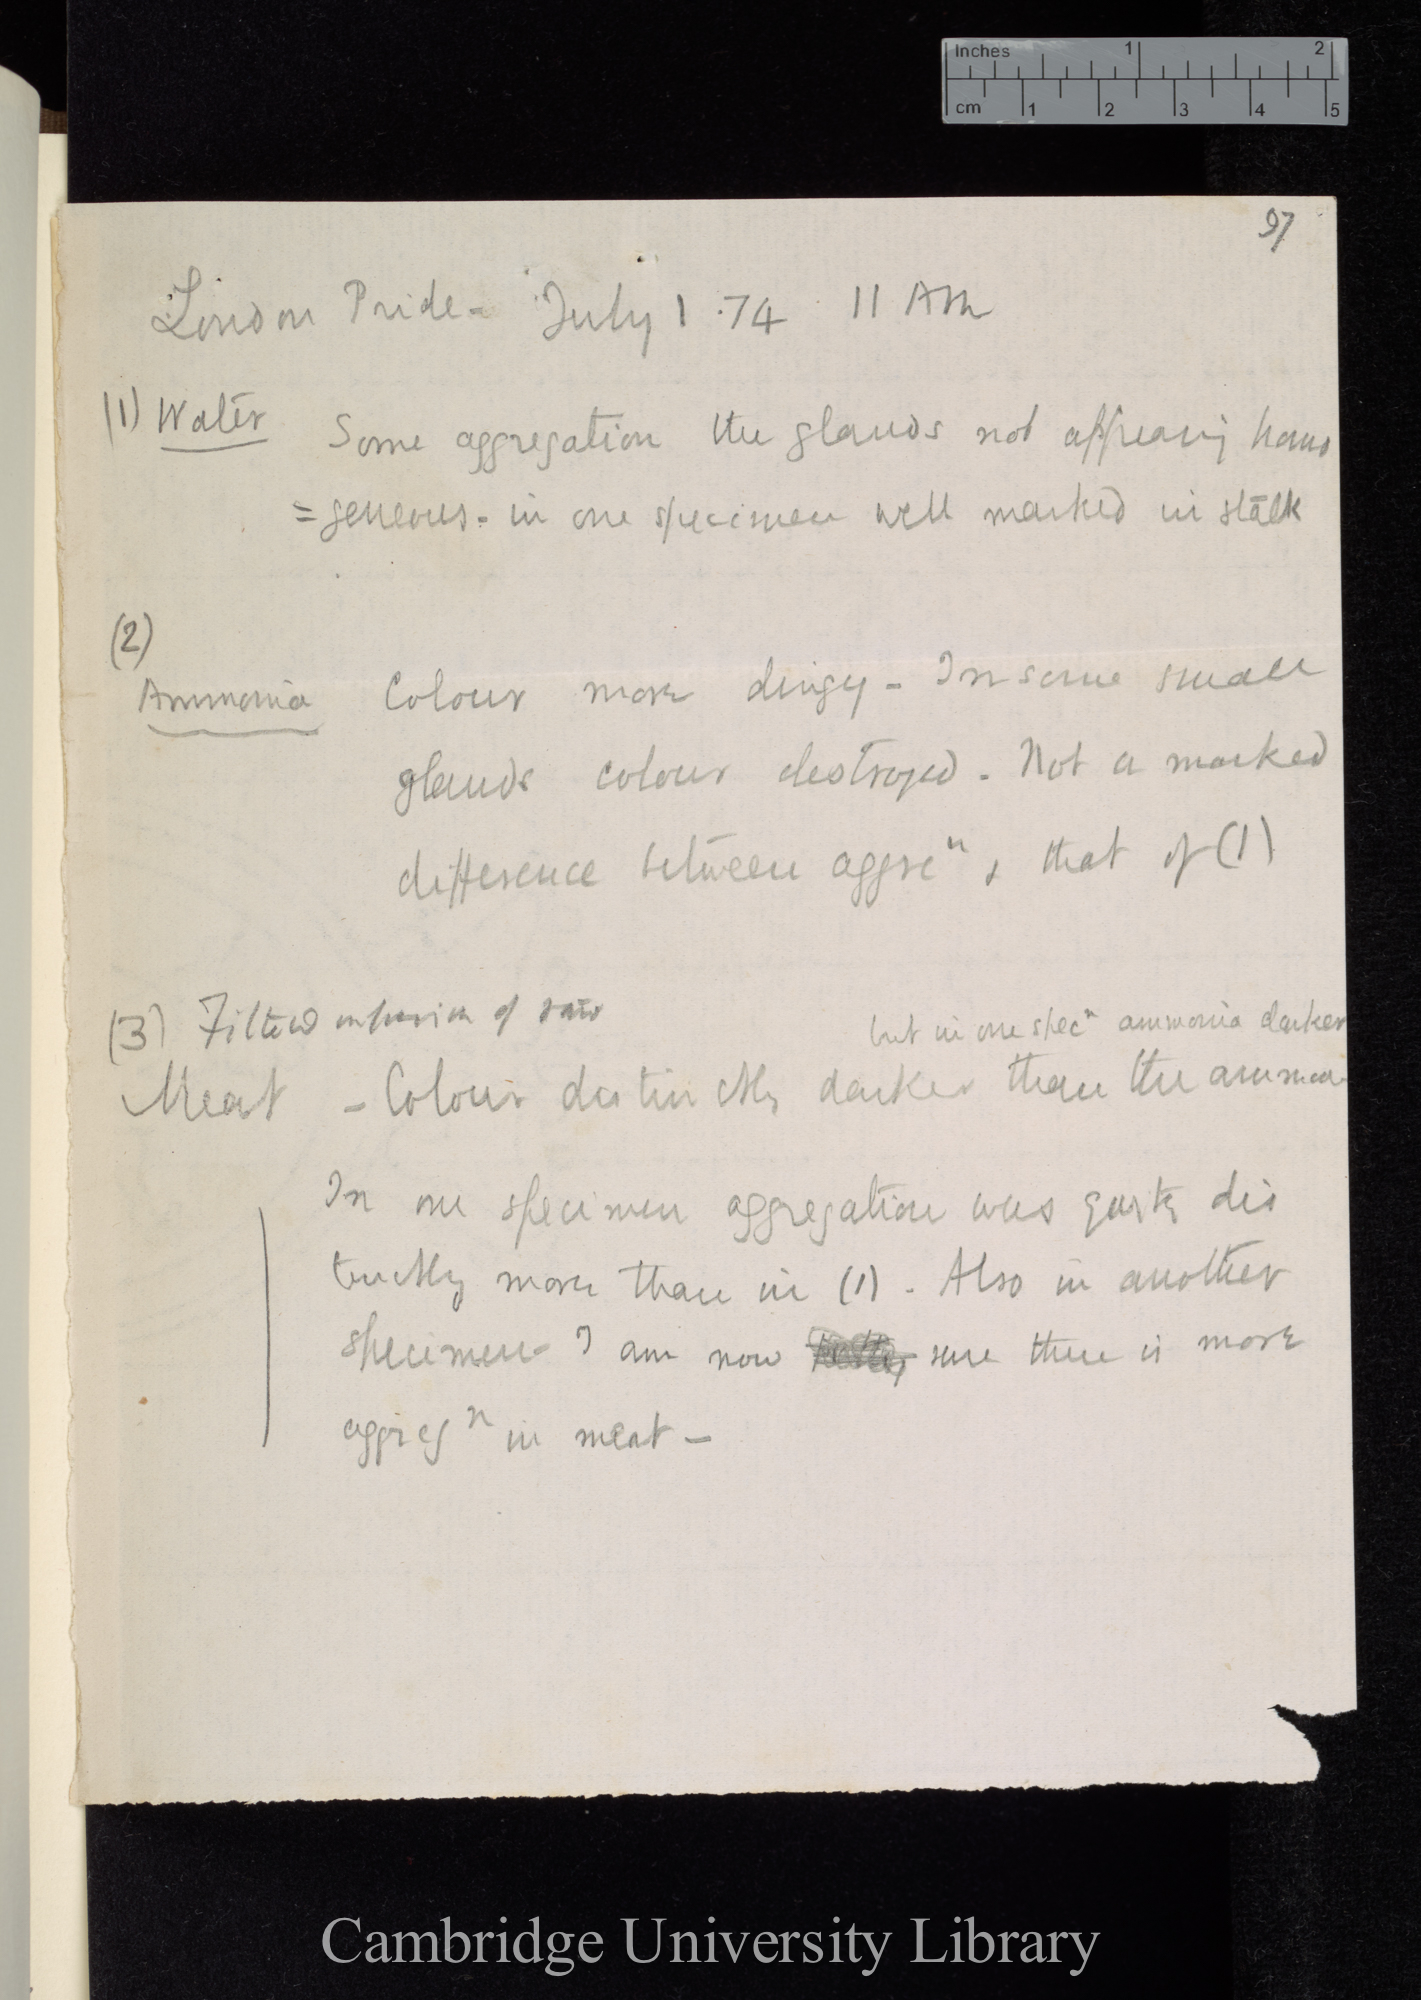 Inches 1 2
cm 1 2 3 4 5
97
London Pride - July 1 .74 11 AM
(1) Water Some aggregation the glands not appearing homo
=geneous - in one specimen well marked in stalk
(2)
Ammonia Colour more dingy - In some small
glands colour destroyed. Not a marked
difference between aggreⁿ & that of (1)
(3) Filtered infusion of raw
but in one specⁿ ammonia darker
Meat - Colour distinctly darker than the ammon
In one specimen aggregation was quite dis
tinctly more than in (1). Also in another
specimen I am now sure there is more
aggregⁿ in meat -
Cambridge University Library